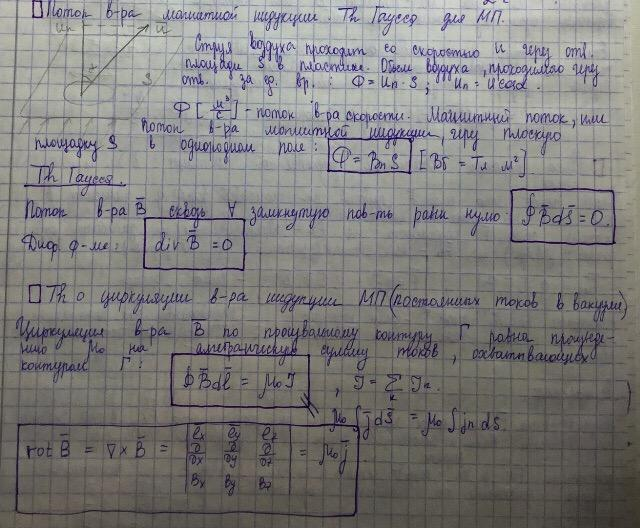 Поток в-ра магнитной индукции. Th Гаусса для МП.
Uₙ U̅
Струя воздуха проходит со скоростью U через отв.
площади S в пластине. Объём воздуха, проходимого через
отв. за ед. вр.: Φ = Uₙ·S; Uₙ = U cosα
α S
Φ [м³/с] - поток в-ра скорости. Магнитный поток, или
поток в-ра магнитной индукции, через плоскую
площадку S в однородном поле: Φ = BₙS [Вб = Тл·м²]
Th Гаусса.
Поток в-ра B̅ сквозь ∀ замкнутую пов-ть равен нулю: ∮B̅dS̅ = 0.
Диф. ф-ме: div B̅ = 0
Th о циркуляции в-ра индукции МП (постоянных токов в вакууме)
Циркуляция в-ра B̅ по произвольному контуру Γ равна произведе-
нию μ₀ на алгебраическую сумму токов, охватывающих
контуром Γ: ∮B̅dl̅ = μ₀I, I = ∑ₖ Iₖ.
μ₀∫j̅dS̅ = μ₀∫jₙdS.
rot B̅ = ∇×B̅ = | e̅x e̅y e̅z | ∂/∂x ∂/∂y ∂/∂z | Bx By Bz | = μ₀j̅